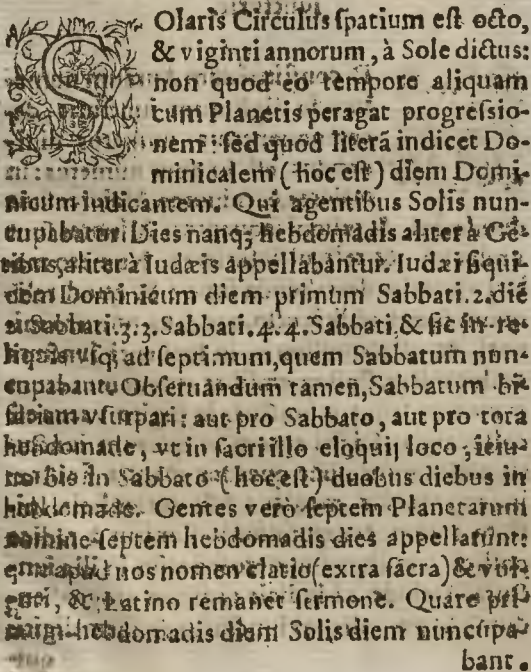 SOlaris Circulus ſpatium eſt octo,
& viginti annorum, à Sole dictus:
non quod eo tempore aliquam
cum Planetis peragat progreſsio-
nem: ſed quod literã indicet Do-
minicalem (hoc eſt) diem Domi-
nicum indicantem. Qui agentibus Solis nun-
cupabatur. Dies nanq; hebdomadis aliter à Gẽ-
tibus, aliter à Iudæis appellabantur. Iudæi ſiqui-
dem Dominicum diem primum Sabbati. 2. diẽ
Sabbati. 3. 3. Sabbati. 4. 4. Sabbati, & ſic in re-
liquis vſq; ad ſeptimum, quem Sabbatum nun-
cupabant. Obſeruãndum tamen, Sabbatum bi-
fariam vſurpari: aut pro Sabbato, aut pro tota
hebdomade, vt in ſacri illo eloquij loco, ieiu-
no bis in Sabbato (hoc eſt) duobus diebus in
hebdomade. Gentes verò ſeptem Planetarum
nomine ſeptem hebdomadis dies appellarunt:
apud nos nomenclatio (extra ſacra) &
, & Latino remanet ſermone. Quare pri-
hebdomadis diem Solis diem nuncupa-
bant.